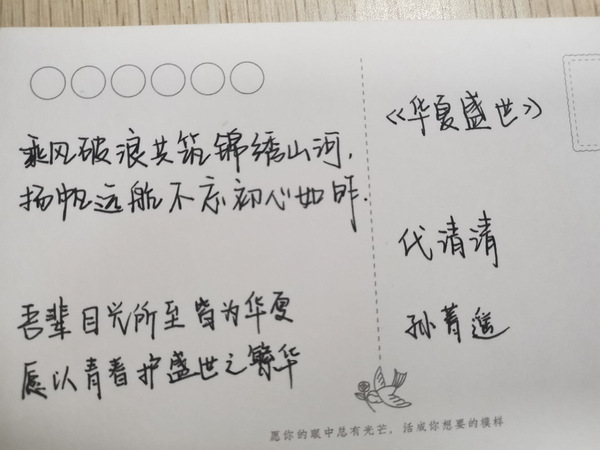 乘风破浪共筑锦绣山河,
扬帆远航不忘初心如昨.
吾辈目光所至皆为华夏
愿以青春护盛世之繁华
《华夏盛世》
代清清
孙菁遥
愿你的眼中总有光芒,活成你想要的模样